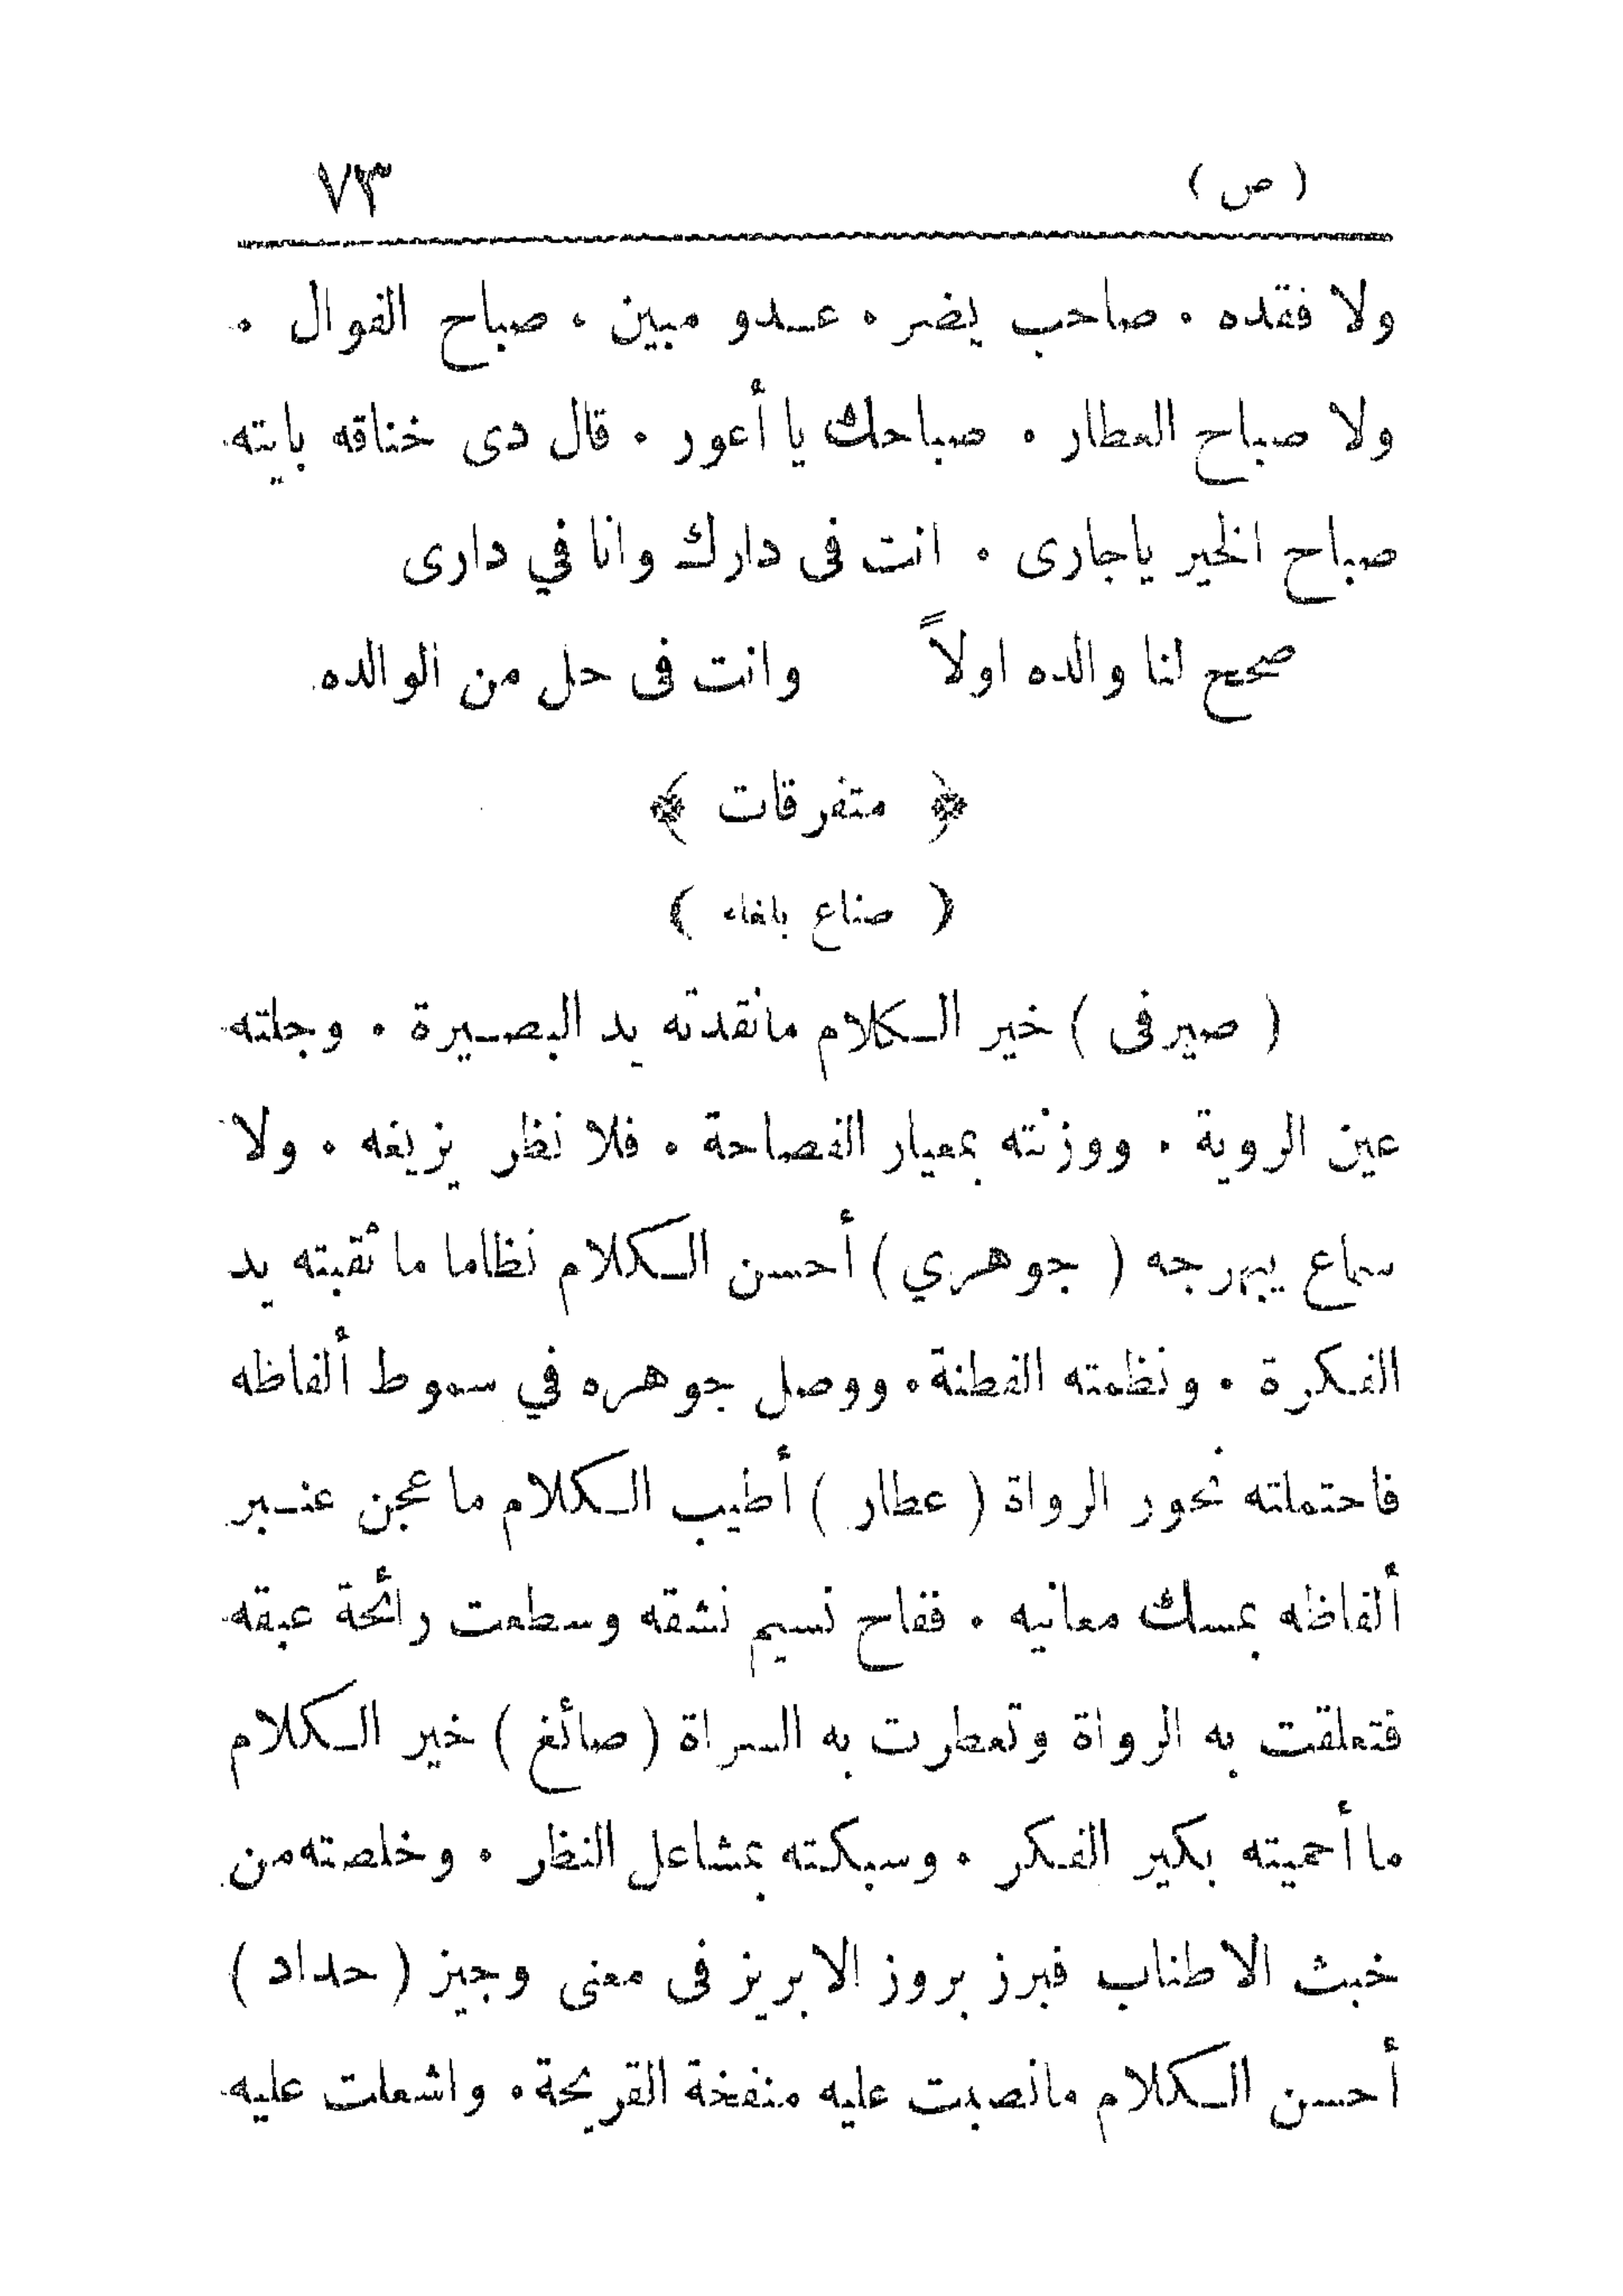 ( ص ) ٧٣
ولا فقده . صاحب يضر . عدو مبين . صباح الفوال .
ولا صباح العطار . صباحك يا أعور . قال دى خناقه بايته
صباح الخير ياجارى . انت فى دارك وانا في دارى
صحيح لنا والده اولاً وانت فى حل من الوالده
﴿ متفرقات ﴾
( صناع بلغاء )
( صيرفى ) خير الكلام مانقدته يد البصيرة . وجلته
عين الروية . ووزنته بمعيار الفصاحة . فلا نظر يزيفه . ولا
سماع يبهرجه ( جوهري ) أحسن الكلام نظاما ما ثقبته يد
الفكرة . ونظمته الفطنة . ووصل جوهره في سموط ألفاظه
فاحتملته نحور الرواة ( عطار ) أطيب الكلام ما عجن عنبر
ألفاظه بمسك معانيه . ففاح نسيم نشقه وسطعت رائحة عبقه
فتعلقت به الرواة وتعطرت به السراة ( صائغ ) خير الكلام
ما أحميته بكير الفكر . وسبكته بمشاعل النظر . وخلصته من
خبث الاطناب فبرز بروز الابريز فى معنى وجيز ( حداد )
أحسن الكلام مانصبت عليه منفخة القريحة . واشعلت عليه